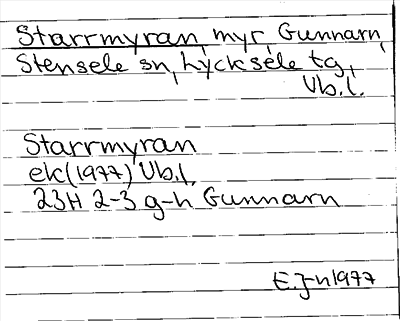 Starrmyran, myr, Gunnarn,
Stensele sn, Lycksele tg,
Vb.l.
Starrmyran
ek(1977) Vb.l.
23H 2-3 g-h Gunnarn
E.J-n 1977